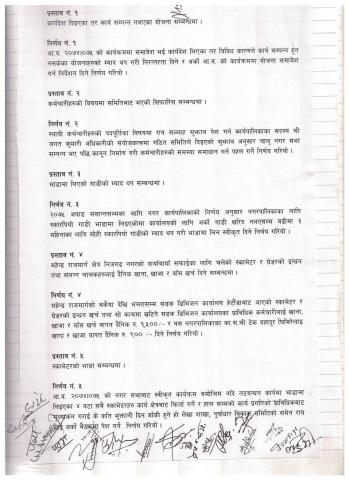 प्रस्ताव नं. १
कार्यादेश दिइएका तर कार्य सम्पन्न नभएका योजना सम्बन्धमा ।
निर्णय नं. १
आ.व. २०७४।०७५ को कार्यक्रममा समावेश भई कार्यादेश लिएका तर विविध कारणले कार्य सम्पन्न हुन
नसकेका योजनाहरुको म्याद थप गरी निरन्तरता दिने र अर्को आ.व. को कार्यक्रममा योजना समावेश
गर्न निर्देशन दिने निर्णय गरियो ।
प्रस्ताव नं. २
कर्मचारीहरुको विषयमा समितिबाट भएको सिफारिस सम्बन्धमा ।
निर्णय नं. २
स्थायी कर्मचारीहरुको पदपूर्तिका विषयमा राय सल्लाह सुझाव पेश गर्न कार्यपालिकाका सदस्य श्री
जगत कुमारी अधिकारीको संयोजकत्वमा गठित समितिले दिइएको सुझाव अनुसार चालु नगर सभा
सम्पन्न भए पछि कानुन निर्माण गरी कर्मचारीहरुको समस्या समाधान गर्न पहल गर्ने निर्णय गरियो ।
प्रस्ताव नं. ३
भाडामा लिएको गाडीको म्याद थप सम्बन्धमा ।
निर्णय नं. ३
२०७५ अषाढ मसान्तसम्मका लागि नगर कार्यपालिकाको निर्णय अनुसार नगरपालिकाका लागि
स्कारपियो गाडी भाडामा लिइएकोमा कार्यालयको लागि अर्को गाडी खरिद नभएसम्म बढीमा ३
महिनाका लागि सोही स्कारपियो गाडीको म्याद थप गरी भाडामा लिन स्वीकृत दिने निर्णय गरियो ।
प्रस्ताव नं. ४
महेन्द्र राजमार्ग क्षेत्र निजगढ नगरको दायाँबायाँ सफाईका लागि चलेको स्काभेटर र ग्रेडरको इन्धन
तथा संलग्न चालकहरुलाई दैनिक खाना, खाजा र बास खर्च दिने सम्बन्धमा ।
निर्णय नं. ४
महेन्द्र राजमार्गको बकैया देखि धनसारसम्म सडक डिभिजन कार्यालय हेटौंडाबाट आएको स्काभेटर र
ग्रेडरको इन्धन खर्च तथा सो काममा खटिने सडक डिभिजन कार्यालयका प्राविधिक कर्मचारीलाई खाना,
खाजा र बास खर्च वापत दैनिक रु. १,५००/- र यस नगरपालिकाका का.स.श्री टेक बहादुर घिमिरेलाई
खाना र खाजा वापत दैनिक रु. ९०० /- दिने निर्णय गरियो ।
प्रस्ताव नं. ५
स्काभेटरको भाडा सम्बन्धमा ।
निर्णय नं. ५
आ.व. २०७४।०७५ को नगर सभाबाट स्वीकृत कार्यक्रम बमोजिम नदि तटबन्धन कार्यमा भाडामा
लिइएका ४ वटा सबै स्काभेटरहरु कार्य क्षेत्रबाट फिर्ता गर्ने र हाल सम्मको कार्य प्रगतिको प्राविधिकबाट
मूल्याङ्कन गराई के कति भुक्तानी दिन बाँकी हुने हो लेखा शाखा, पूर्वाधार विकास समितिको समेत राय
लिई अर्को बैठकमा पेश गर्ने निर्णय गरियो ।